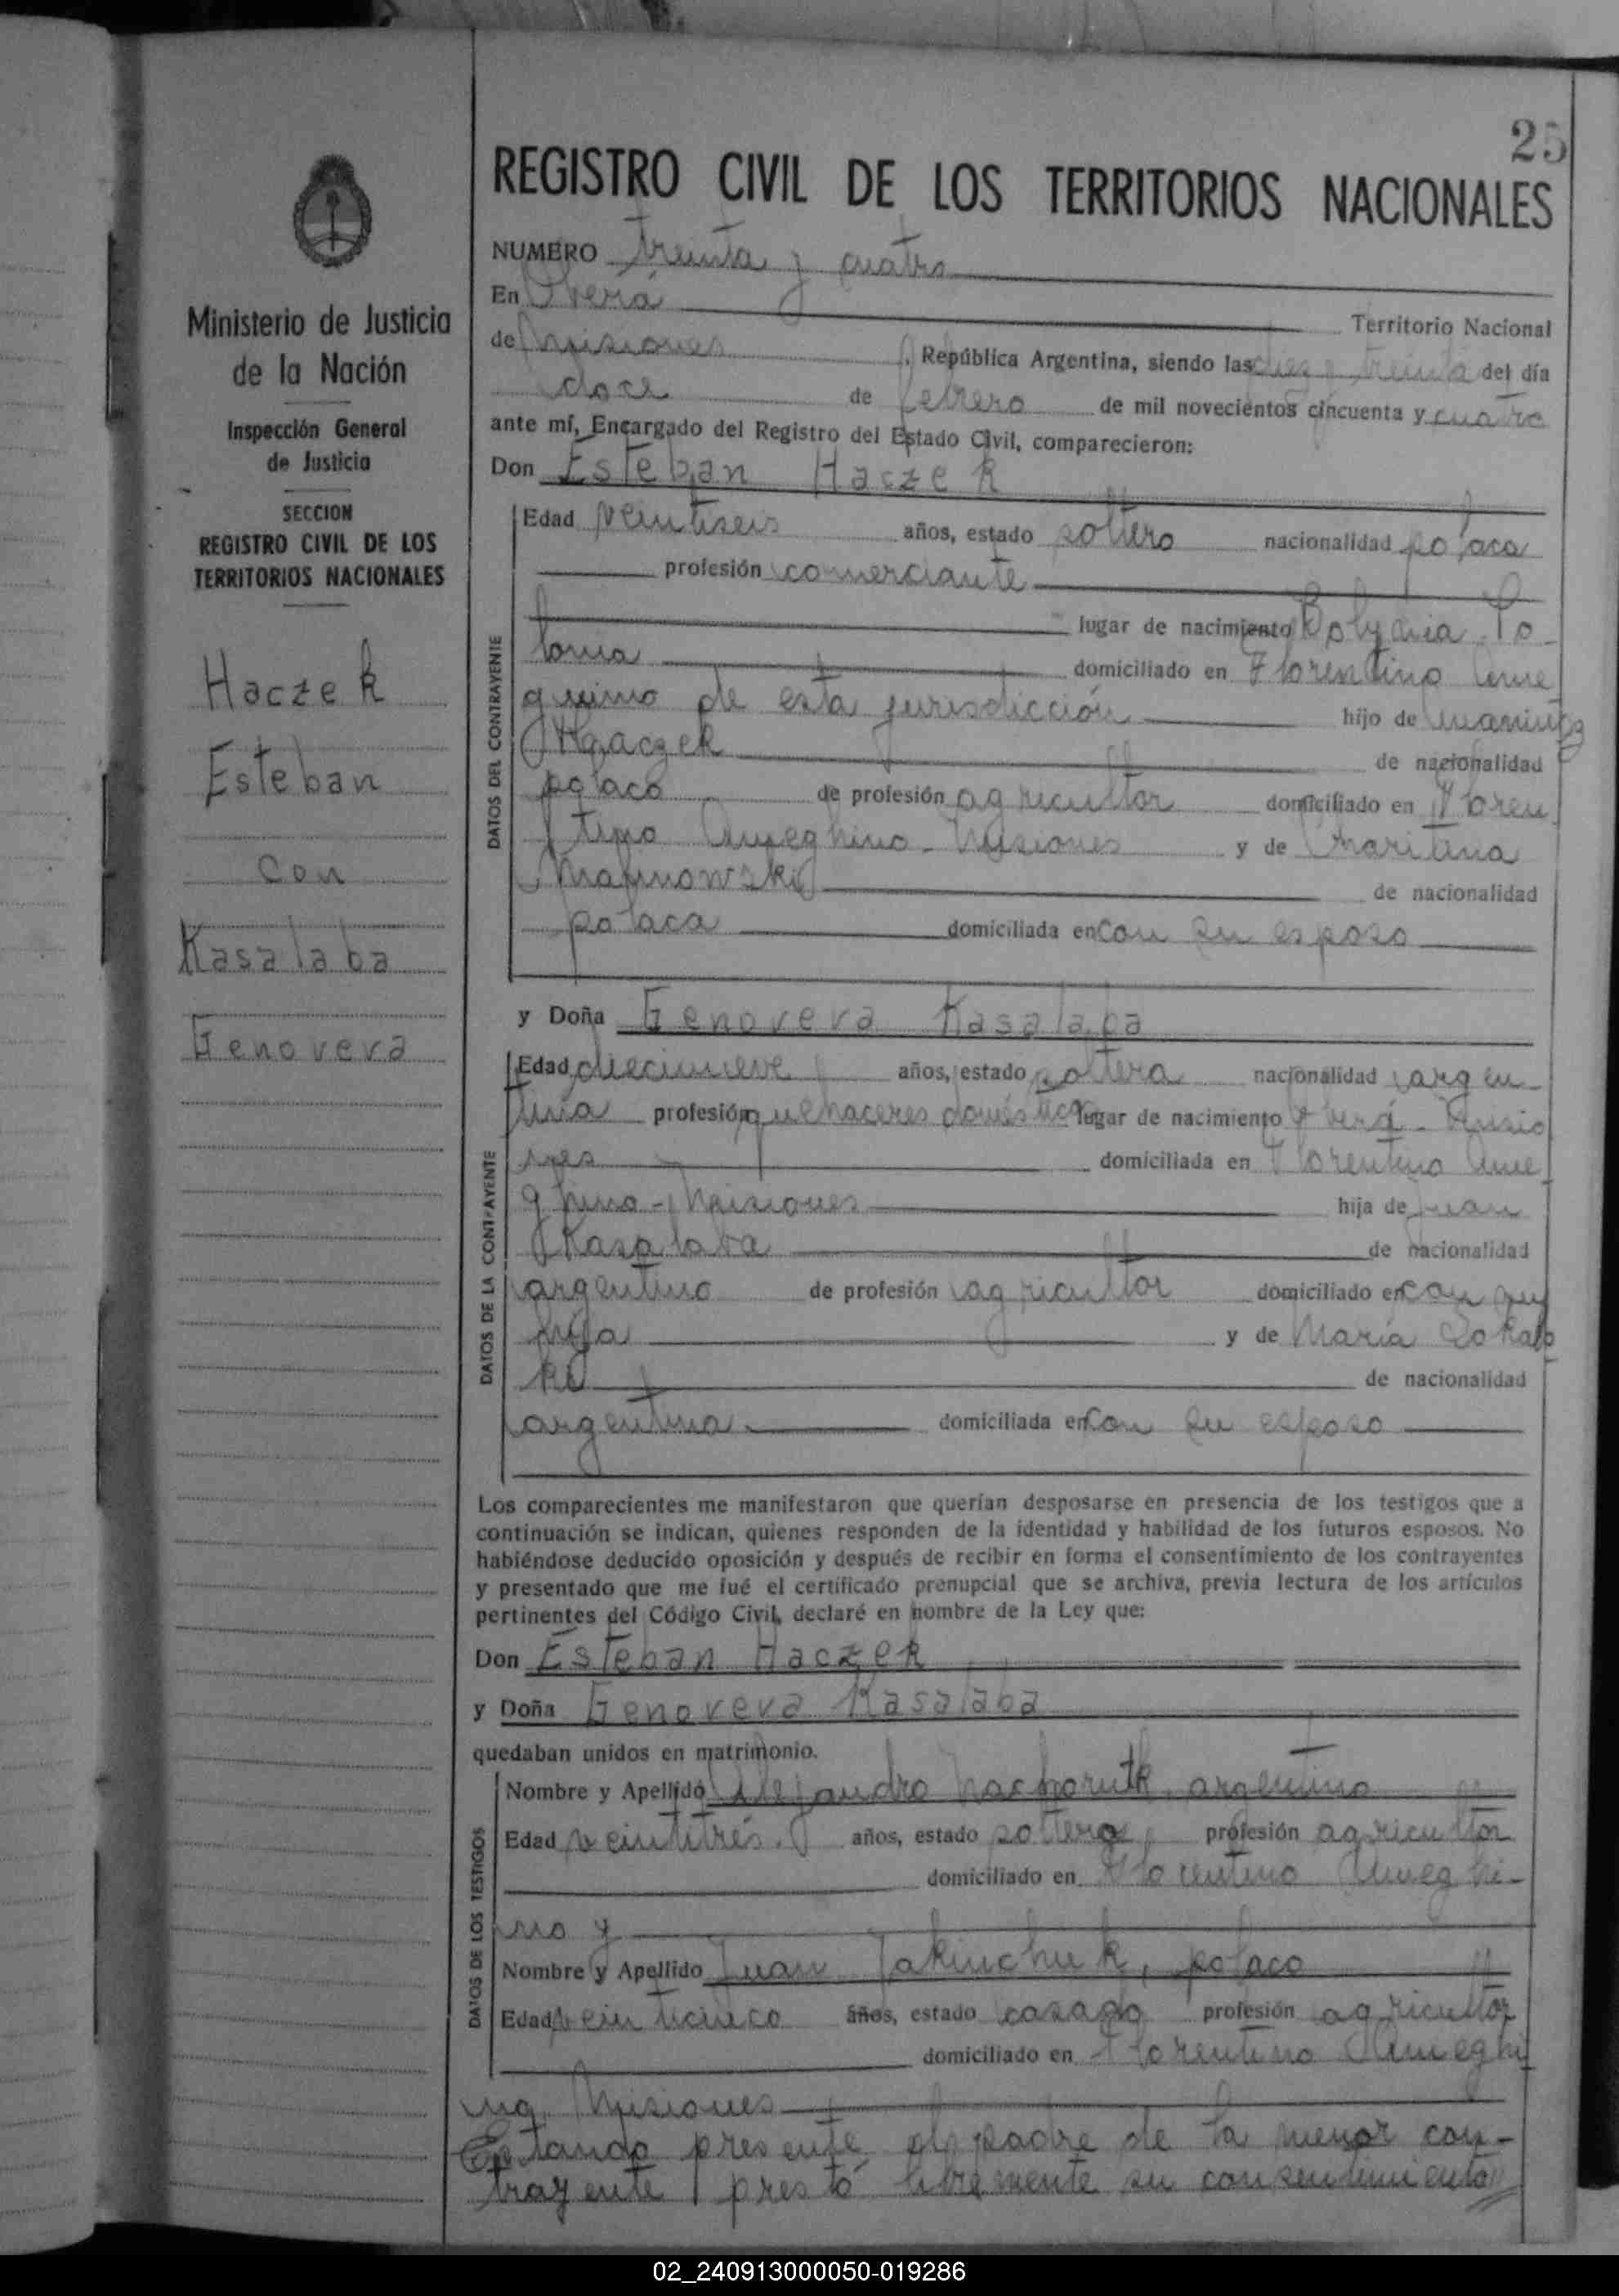 25
REGISTRO CIVIL DE LOS TERRITORIOS NACIONALES
Ministerio de Justicia
de la Nación
Inspección General
de Justicia
SECCION
REGISTRO CIVIL DE LOS
TERRITORIOS NACIONALES
Haczek
Esteban
con
Kasalaba
Genoveva
NUMERO treinta y cuatro
En Oberá Territorio Nacional
de Misiones, República Argentina, siendo las diez y treinta del día
doce de febrero de mil novecientos cincuenta y cuatro
ante mí, Encargado del Registro del Estado Civil, comparecieron:
Don Esteban Haczek
DATOS DEL CONTRAYENTE
Edad veintiseis años, estado soltero nacionalidad polaca
profesión comerciante
lugar de nacimiento Po
lonia domiciliado en Florentino Ame
guino de esta jurisdicción hijo de
Haczek de nacionalidad
polaco de profesión agricultor domiciliado en Floren
tino Ameghino - Misiones y de
Malinowski de nacionalidad
polaca domiciliada en con su esposo
y Doña Genoveva Kasalaba
DATOS DE LA CONTRAYENTE
Edad diecinueve años, estado soltera nacionalidad argen
tina profesión quehaceres domésticos lugar de nacimiento Oberá - Misio
nes domiciliada en Florentino Ame
ghino - Misiones hija de Juan
Kasalaba de nacionalidad
argentino de profesión agricultor domiciliado en con su
hija y de María Sokals
ki de nacionalidad
argentina domiciliada en con su esposo
Los comparecientes me manifestaron que querían desposarse en presencia de los testigos que a
continuación se indican, quienes responden de la identidad y habilidad de los futuros esposos. No
habiéndose deducido oposición y después de recibir en forma el consentimiento de los contrayentes
y presentado que me fué el certificado prenupcial que se archiva, previa lectura de los artículos
pertinentes del Código Civil, declaré en nombre de la Ley que:
Don Esteban Haczek
y Doña Genoveva Kasalaba
quedaban unidos en matrimonio.
DATOS DE LOS TESTIGOS
Nombre y Apellido Alejandro argentino
Edad veintitrés años, estado soltero, profesión agricultor
domiciliado en Florentino Ameghi-
no y
Nombre y Apellido Juan Jakimchuk, polaco
Edad veinticinco años, estado casado profesión agricultor
domiciliado en Florentino Ameghi
no, Misiones
Estando presente el padre de la menor con-
trayente prestó libremente su consentimiento
02_240913000050-019286